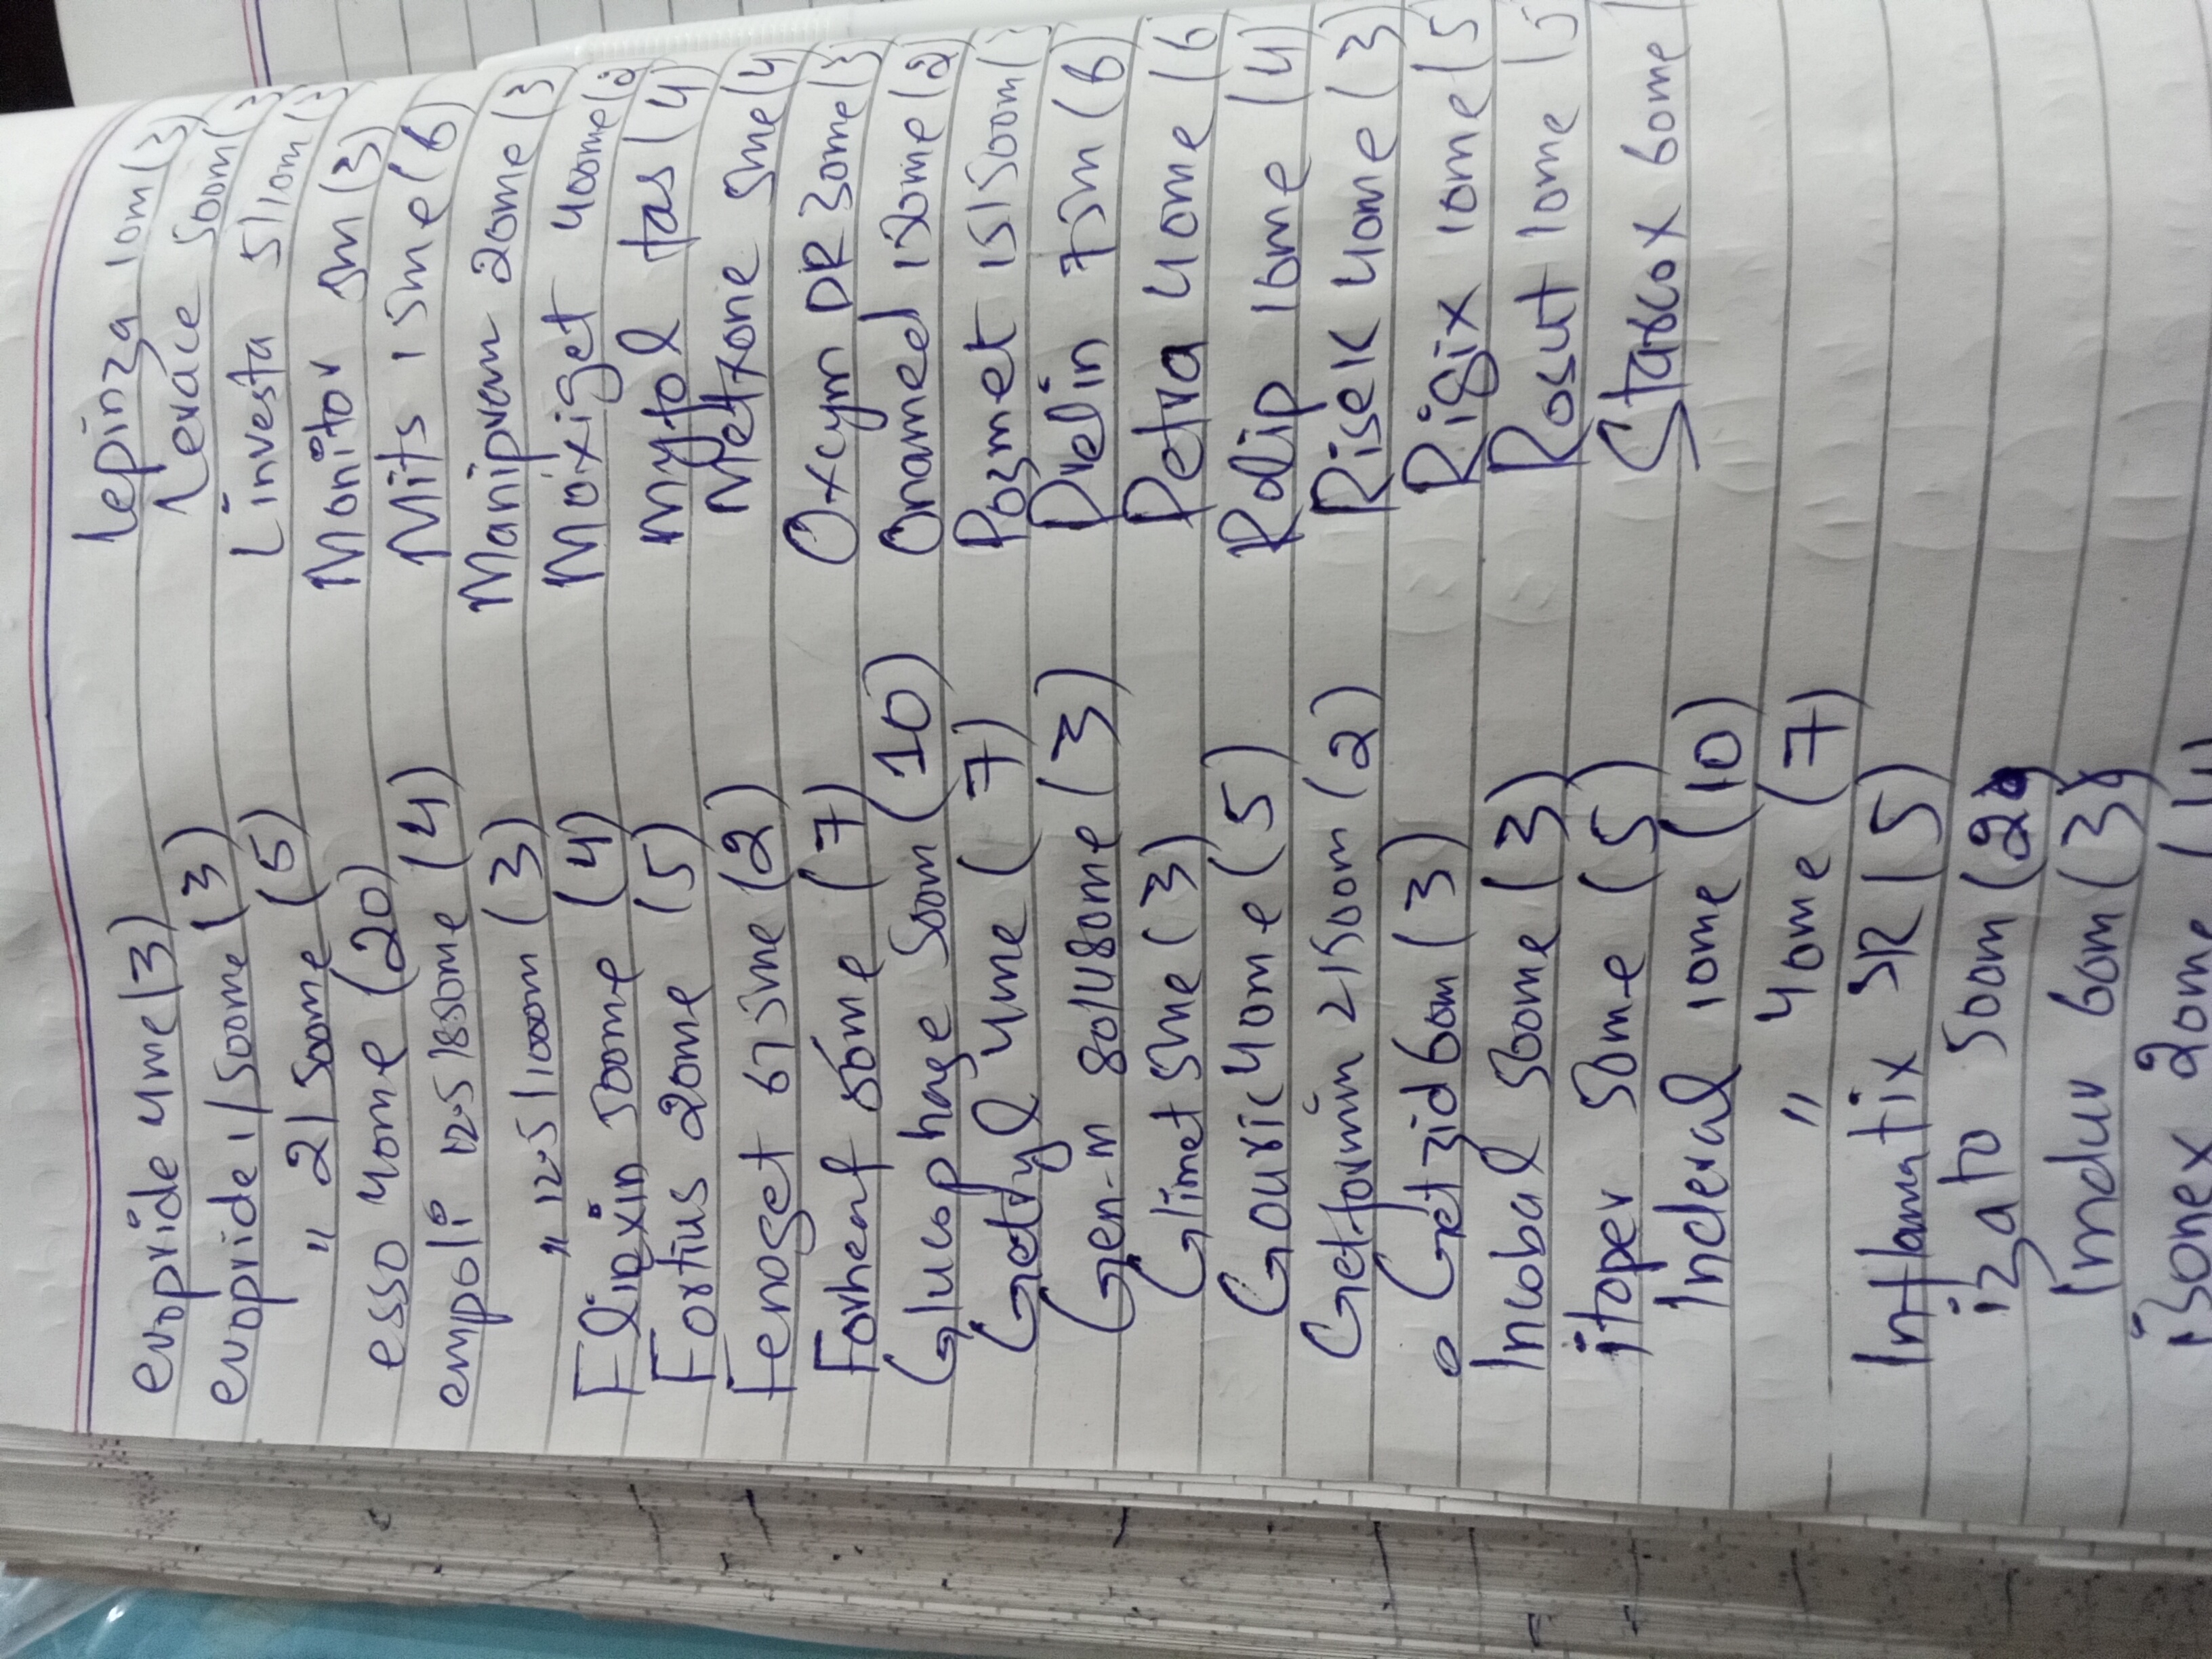 evopride 4me (3)
evopride 1/500me (3)
" 2/500me (5)
esso 40me (20)
empoli 12.5/850me (4)
" 12.5/1000m (3)
Fliaxin 500me (4)
Fortius 20me (5)
Fenoget 67 5me (2)
Forhenf 50me (7)
Glucophage 500m (10)
Getryl 4me (7)
Gen-m 80/480me (3)
Glimet 5me (3)
Gouric 40me (5)
Getformin 2/500m (2)
Getzid 60m (3)
Incobal 500me (3)
itoper 50me (5)
Inderal 10me (10)
" 40me (7)
Inflamatix SR (5)
izato 500m (2
Imdur 60m (3)
isonex 20me (4
lepinza 10m (3)
levace 500m (3
Linvesta 5/10m (3
Monitor 5m (3)
Mits 15me (6)
Manipren 20me (3
Moxiget 400me (2
mytol tas (4)
Metxone 5me (4
Oxcym DR 30me (3
Onamed 150me (2)
Pozmet 15/500m (
Prelin 75m (6)
Petra 40me (6
Rolip 10me (4)
Risek 40me (3)
Rigix 10me (5
Rosut 10me (5
Starcox 60me (